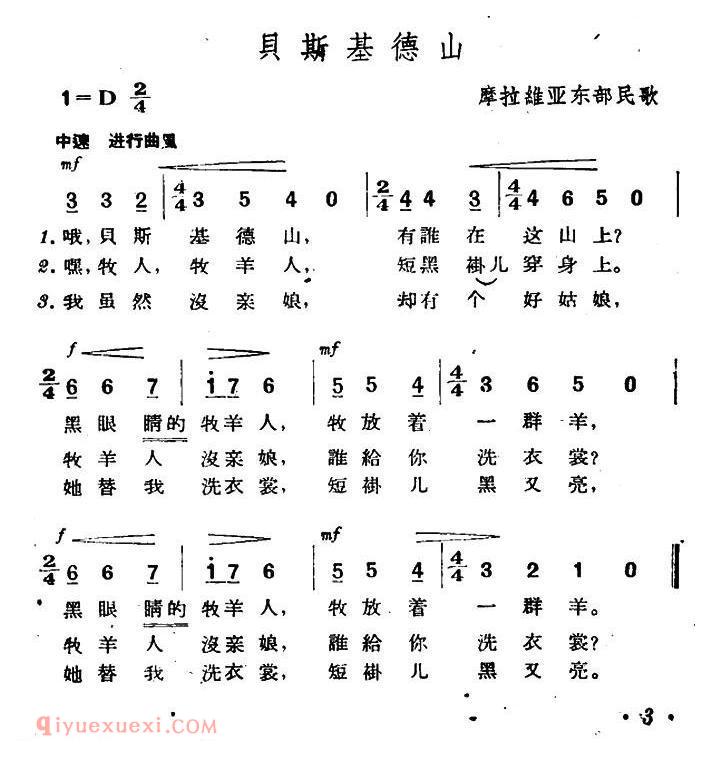 貝斯基德山
1=D 2/4
摩拉維亚东部民歌
中速 进行曲風
mf
3 3 2 | 4/4 3 5 4 0 | 2/4 4 4 3 | 4/4 4 6 5 0 |
1. 哦, 貝斯基德山, 有誰在这山上?
2. 嘿, 牧人, 牧羊人, 短黑褂儿穿身上。
3. 我虽然沒亲娘, 却有个好姑娘,
f mf
2/4 6 6 7 | i 7 6 | 5 5 4 | 4/4 3 6 5 0 |
黑眼睛的牧羊人, 牧放着一群羊,
牧羊人沒亲娘, 誰給你洗衣裳?
她替我洗衣裳, 短褂儿黑又亮,
f mf
2/4 6 6 7 | i 7 6 | 5 5 4 | 4/4 3 2 1 0 ‖
黑眼睛的牧羊人, 牧放着一群羊。
牧羊人沒亲娘, 誰給你洗衣裳?
她替我洗衣裳, 短褂儿黑又亮。
qiyuexuexi.com
· 3 ·